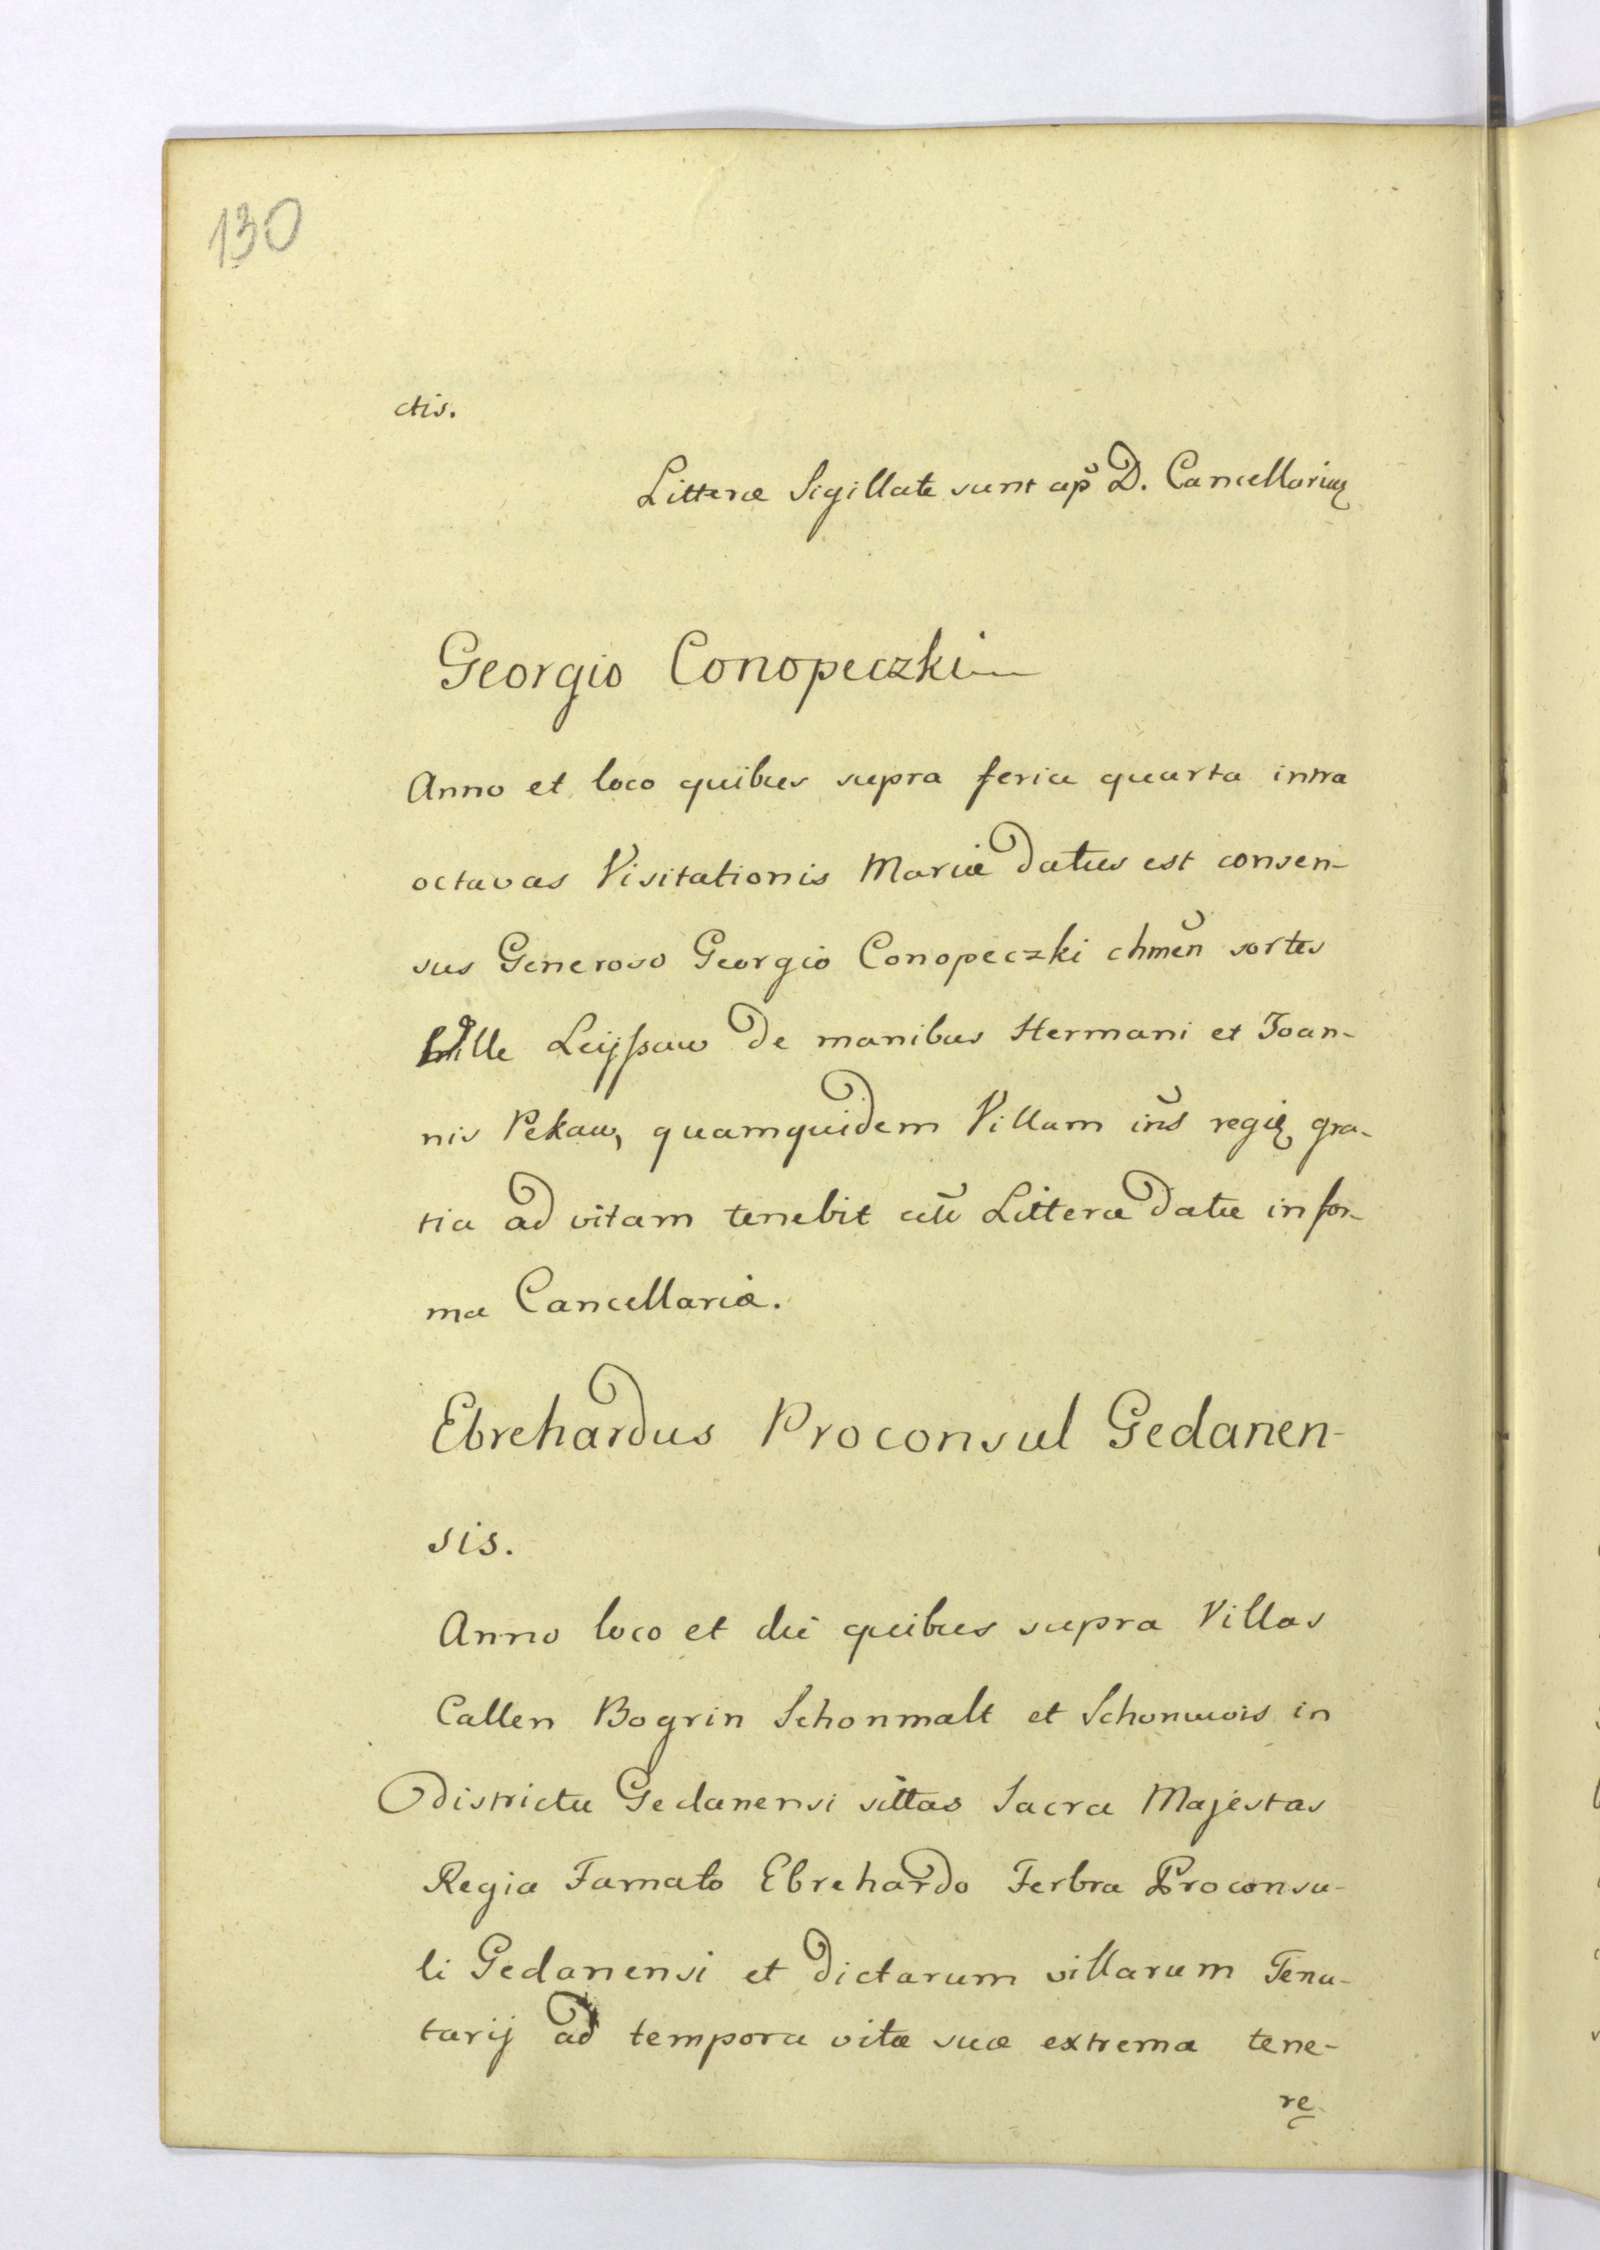 130
ctis.
Litteræ Sigillate sunt ap̆ D. Cancellariuȝ
Georgio Conopeczki
Anno et loco quibus supra feria quarta intra
octavas Visitationis Mariæ datus est consen-
sus Generoso Georgio Conopeczki chmĕn sortes
Ville Leÿssaw de manibus Hermani et Joan-
nis Pekaw, quamquidem Villam iŭs regię gra-
tia ad vitam tenebit Litteræ datæ in for-
ma Cancellariæ.
Ebrehardus Proconsul Gedanen-
sis.
Anno loco et die quibus supra Villas
Callen Bogrin Schonmalt et Schonwois in
districtu Gedanensi sittas Sacra Majestas
Regia Famato Ebrehardo Ferbra Proconsu-
li Gedanensi et dictarum villarum Tenu-
tarij ad tempora vitæ suæ extrema tene-
re